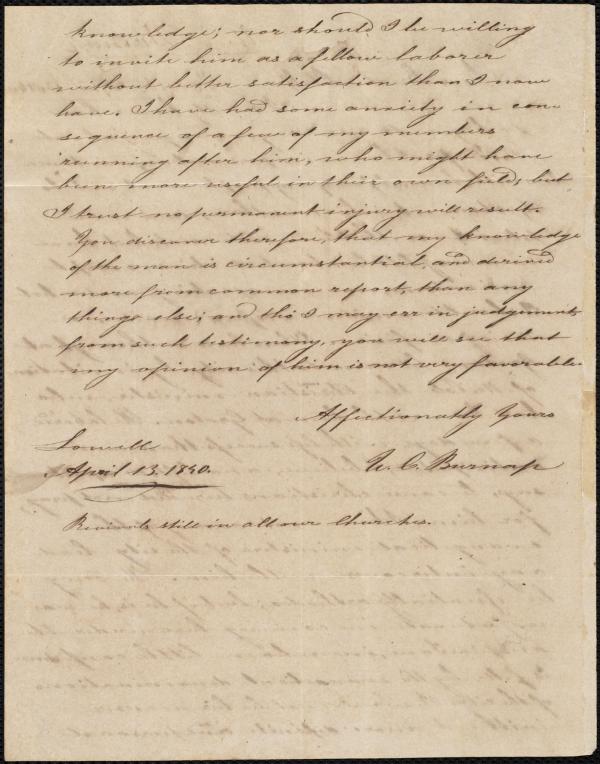 knowledge; nor should I be willing
to invite him as a fellow laborer
without better satisfaction than I now
have. I have had some anxiety in con-
sequence of a few of my members
running after him, who might have
been more useful in their own field, but
I trust no permanent injury will result.
You discover therefore, that my knowledge
of the man is circumstantial, and derived
more from common report, than any
thing else; and tho' I may err in judgement
from such testimony, you will see that
my opinion of him is not very favorable.
Affectionatly Yours
U. C. Burnap
Lowell
April 13. 1840.
Revivals still in all our Churches.